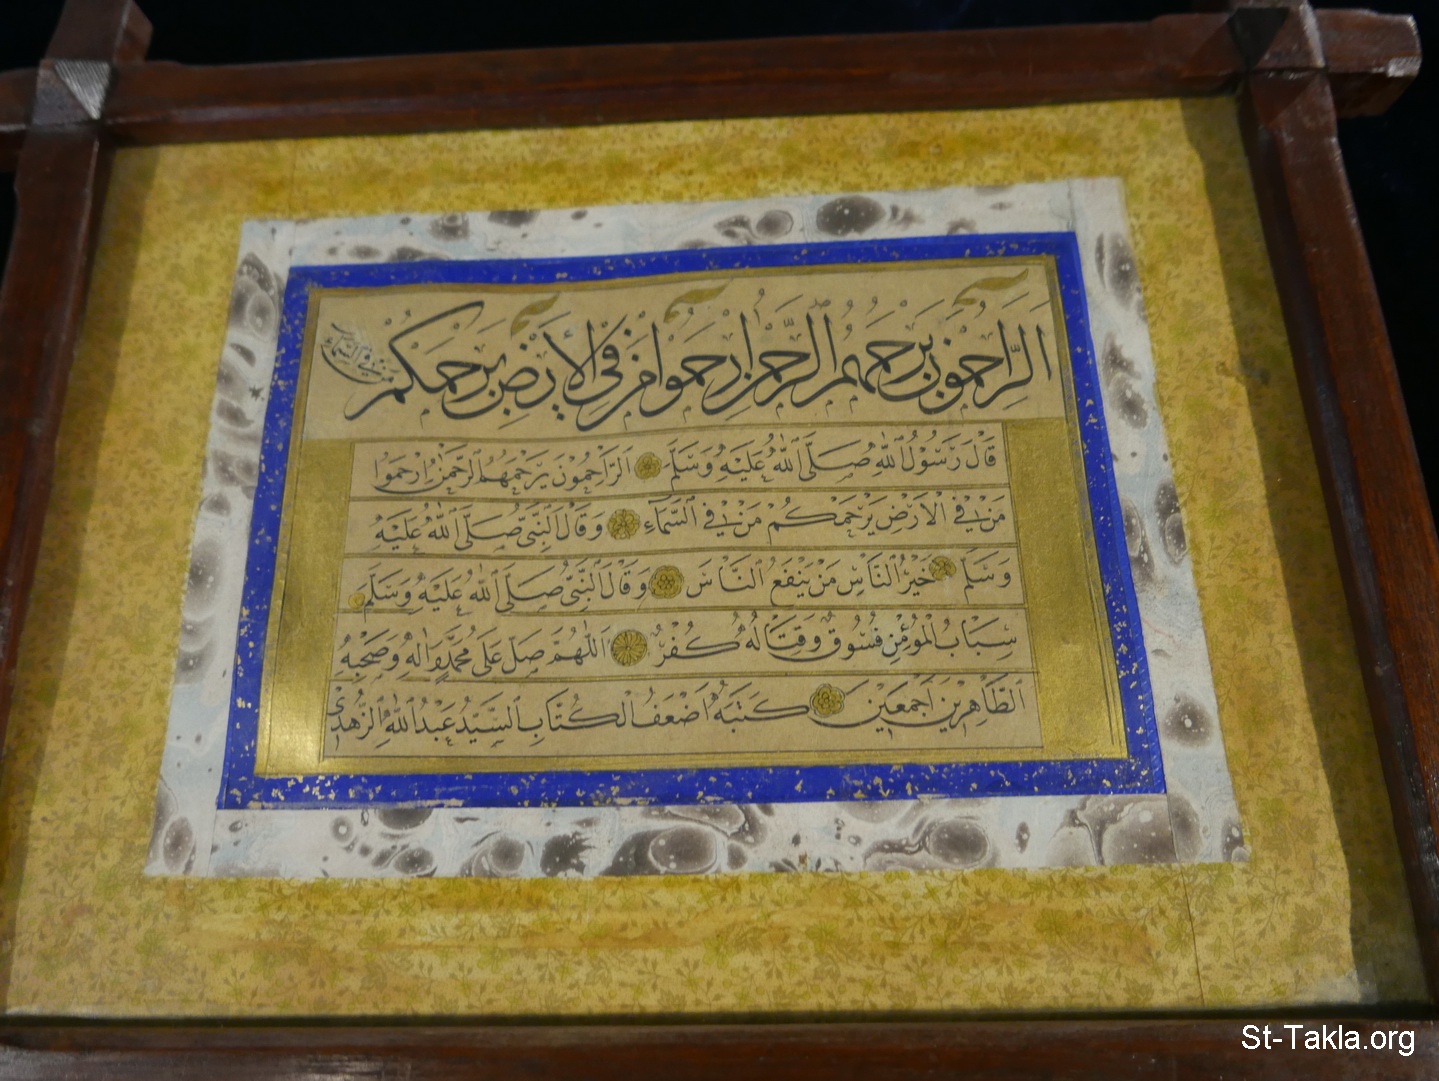 الرَّاحِمُونَ يَرْحَمُهُمُ الرَّحْمٰنُ اِرْحَمُوا مَنْ فِي الْأَرْضِ يَرْحَمْكُمْ مَنْ فِي السَّمَاءِ
قَالَ رَسُولُ اللهِ صَلَّى اللهُ عَلَيْهِ وَسَلَّمَ الرَّاحِمُونَ يَرْحَمُهُمُ الرَّحْمٰنُ اِرْحَمُوا
مَنْ فِي الْأَرْضِ يَرْحَمْكُمْ مَنْ فِي السَّمَاءِ وَقَالَ النَّبِيُّ صَلَّى اللهُ عَلَيْهِ
وَسَلَّمَ خَيْرُ النَّاسِ مَنْ يَنْفَعُ النَّاسَ وَقَالَ النَّبِيُّ صَلَّى اللهُ عَلَيْهِ وَسَلَّمَ
سِبَابُ الْمُؤْمِنِ فُسُوقٌ وَقِتَالُهُ كُفْرٌ اَللّٰهُمَّ صَلِّ عَلَى مُحَمَّدٍ وَاٰلِهِ وَصَحْبِهِ
الطَّاهِرِينَ اَجْمَعِينَ كَتَبَهُ اَضْعَفُ الْكُتَّابِ السَّيِّدُ عَبْدُ اللهِ الزُّهْدِيُّ
St-Takla.org